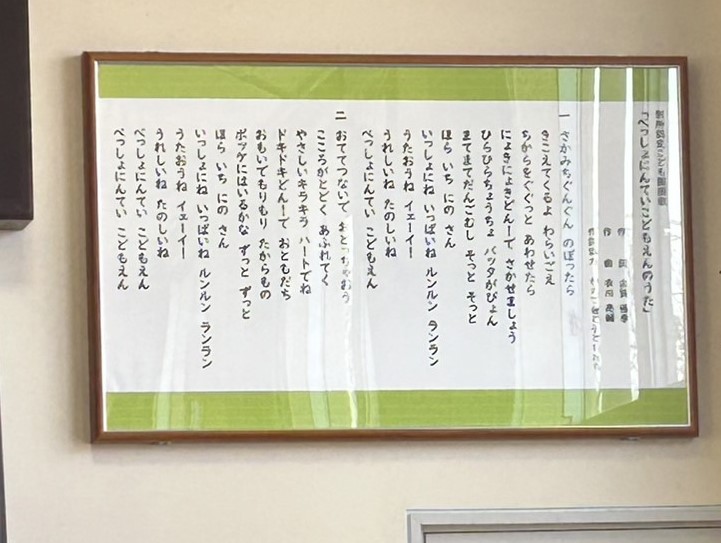 別所認定こども園園歌
「べっしょにんていこどもえんのうた」
作
作 曲
一 さかみちぐんぐん のぼったら
きこえてくるよ わらいごえ
ちからをぐぐっと あわせたら
にょきにょきどんーで さかせましょう
ひらひらちょうちょ バッタがぴょん
まてまてだんごむし そっと そっと
ほら いち にの さん
いっしょにね いっぱいね ルンルン ランラン
うたおうね イェーイー
うれしいね たのしいね
べっしょにんてい こどもえん
二 おててつないで
こころがとどく あふれてく
やさしいキラキラ ハートでね
ドキドキどんーで おともだち
おもいでもりもり たからもの
ポッケにはいるかな ずっと ずっと
ほら いち にの さん
いっしょにね いっぱいね ルンルン ランラン
うたおうね イェーイー
うれしいね たのしいね
べっしょにんてい こどもえん
べっしょにんてい こどもえん